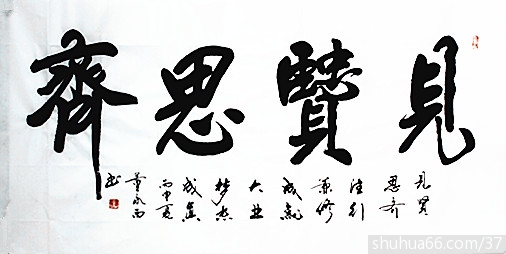 見賢思齊
見賢
思齊
德行
兼修
成就
大业
梦想
成真
丙申夏
董永西
书
shuhua66.com/37